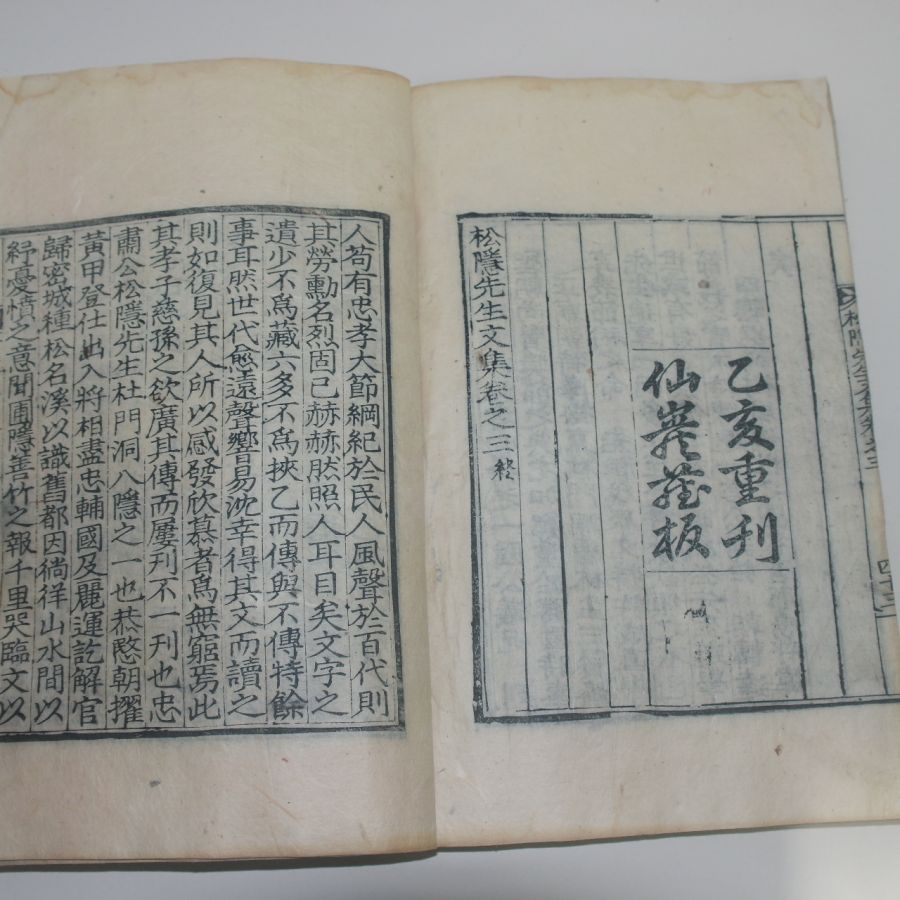 乙亥重刊
仙巖藏板
松隱先生文集卷之三 終
松隱先生文集卷之三
四十二
人苟有忠孝大節綱紀於民人風聲於百代則
其勞勳名烈固已赫赫然照人耳目矣文字之
遺少不爲藏六多不爲挾乙而傳與不傳特餘
事耳然世代愈遠聲響易沈幸得其文而讀之
則如復見其人所以感發欣慕者爲無窮焉此
其孝子慈孫之欲廣其傳而屢刊不一刊也忠
肅公松隱先生杜門洞八隱之一也恭愍朝擢
黃甲登仕出入將相盡忠輔國及麗運訖解官
歸密城種松名溪以識舊都因徜徉山水間以
紓憂憤之意聞圃隱善竹之報千里哭臨文以